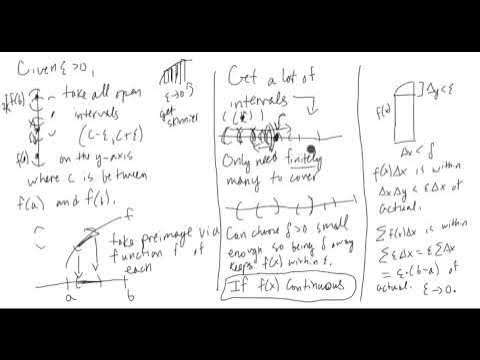 Given ε>0,
f(b)
take all open
intervals
(c-ε, c+ε)
f(a)
on the y-axis
where c is between
f(a) and f(b).
f
take preimage via
function f of
each
a
b
ε→0
get
skinnier
Get a lot of
intervals
Only need finitely
many to cover
Can choose δ>0 small
enough so being δ away
keeps f(x) within ε.
If f(x) continuous
Δy<ε
f(x)
Δx<δ
f(x)Δx is within
ΔxΔy < εΔx of
actual.
Σf(x)Δx is within
ΣεΔx = εΣΔx
= ε·(b-a) of
actual. ε→0.